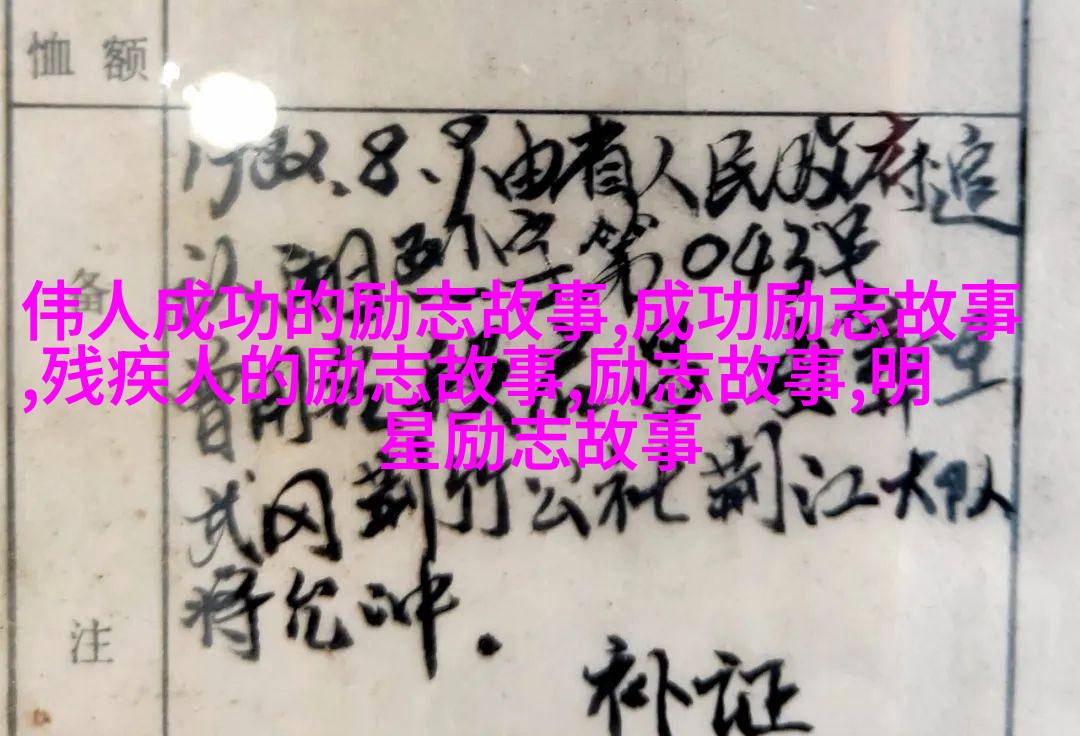 恤额
1982.8.9由省人民政府追
认,湘烈字第043号
备
伟人成功的励志故事,成功励志故事
,残疾人的励志故事,励志故事,明
星励志故事
武冈荆竹公社荆江大队
蒋允冲.
注
补证